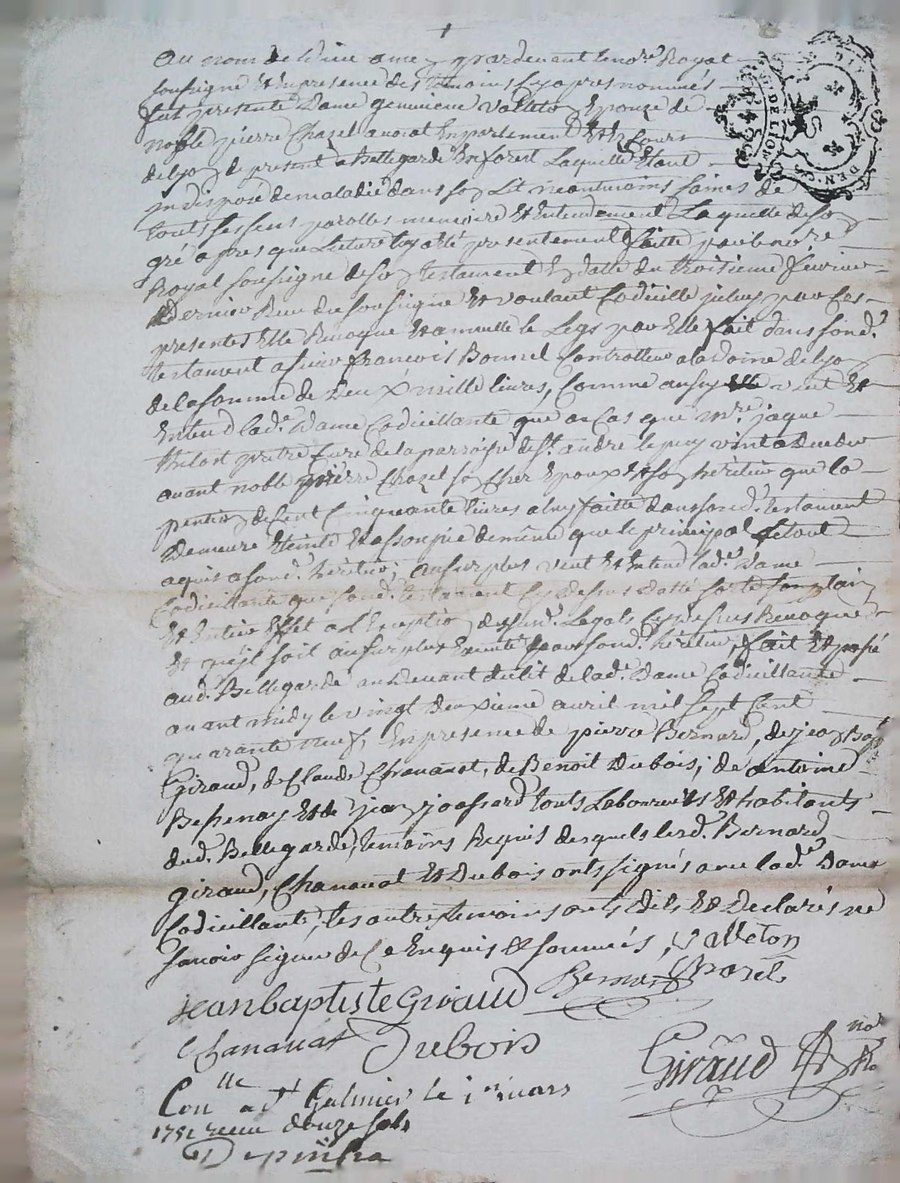 au nom de dieu amen, pardevant le no.re Royal
soussigné et en presence des temoins cy apres nommés
fut presente Dame genevieve Valleton Epouze de
noble pierre Chazel avocat En parlement Et Es Cours
de lyon, de present a Bellegarde En forest Laquelle Etant
indisposé de maladie dans son Lit neantmoins saines de
touts ses sens parolles memoire Et Entendement Laquelle de son
gré apres que Lecture luy a eté presentement faitte par le no.re
Royal soussigné de son testament En datte du troisieme fevrier
Dernier Receu du soussigné Et voulant Codiciller jcelluy par Ces
presentes Elle Revoque Et annulle le Legs par Elle fait dans son d.t
testament a sieur francois Bonnel Controlleur a la doüine de lyon
de la somme de Deux mille livres, Comme aussy veut Et
Entend lad.e Dame Codicillante que au Cas que m.re jaque
thelost pretre Curé de la parroisse de S.t andré le puy vint a Deceder
avant noble pierre Chazel son Cher Epoux Et son heritier que la
pention de Cent Cinquante livres a luy faitte dans son d.t testament
Demeure Eteinte Et assoupie de même que le principal Le tout
aquis a son d.t heritier; au surplus veut Et Entend lad.e Dame
Codicillante que son d.t testament Cy Dessus datté sorte son plain
Et Entier Effet a L'Exception desdits Legats Cy Dessus Revoqué
Et qu'il soit au surplus Executé par son d.t heritier, fait Et passé
aud.t Bellegarde au Devant du lit de lad.e Dame Codicillante
avant midy le vingt Deuxieme avril mil sept Cent
quarante neuf, En presence de pierre Bernard, de jean Bap.te
Giraud, de Claude Chananat, de Benoit Dubois, de antoine
Bespenay Et de jean joassard touts Laboureurs Et habitants
dud.t Bellegarde, temoins Requis desquels lesd.t Bernard
giraud, Chananat Et Dubois onts signés avec lad.e Dame
Codicillante, les autres temoins onts dits Et Declarés ne
savoir signer de Ce Enquis Et sommés, Valleton
Jean baptiste Giraud Bernard Chazel
Chananat Dubois
Giraud no.re R.
Con.lle a S.t Galmier le 1.er mars
1751 receu douze sols
Depinha
DEN. GE. DE LION